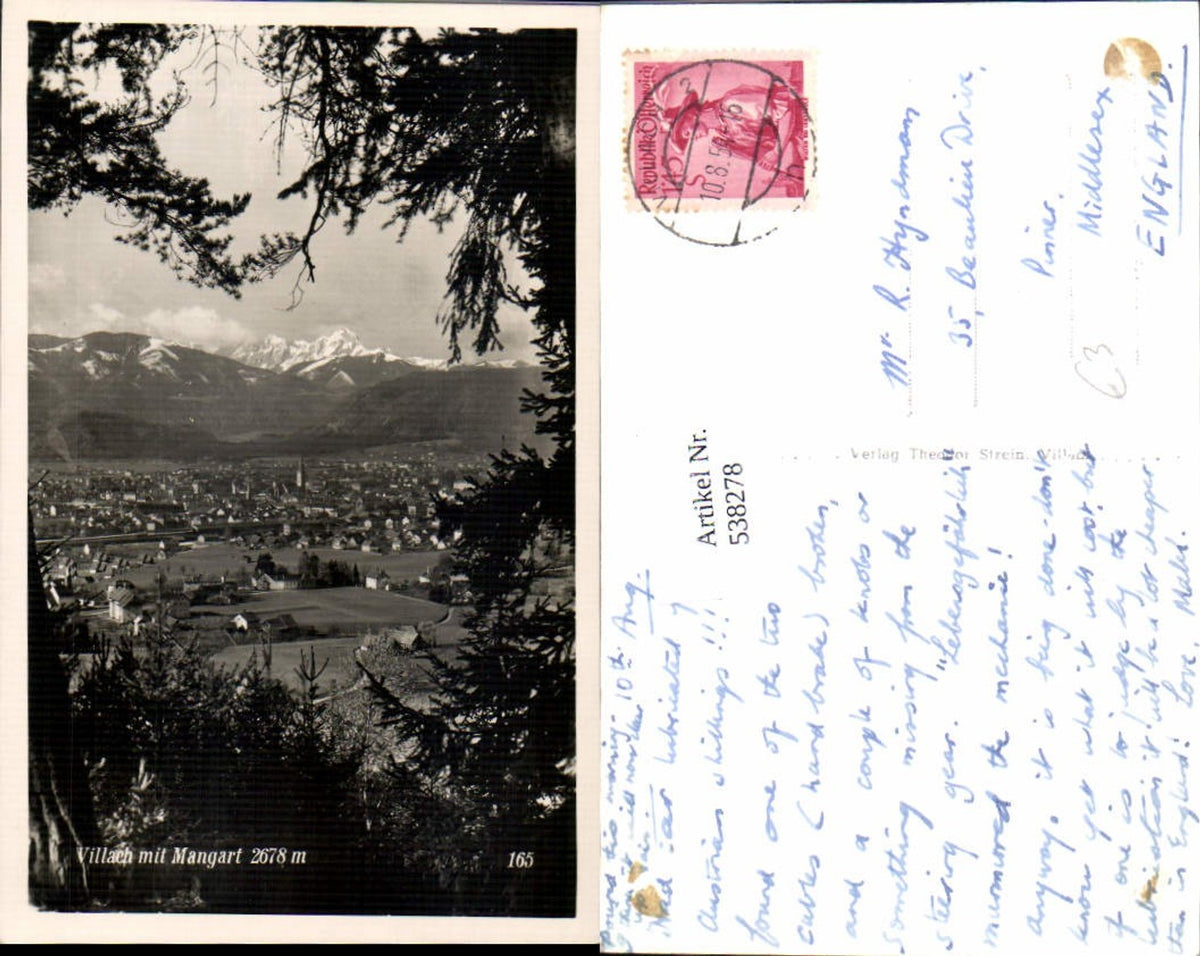 Villach mit Mangart 2678 m
165
Republik Österreich
10.8.5
Mr. R. Hyndman
35, Beaulieu Drive,
Pinner.
Middlesex
ENGLAND.
63
Verlag Theodor Strein, Villach
Artikel Nr.
538278
this morning 10th Aug.
Had car lubricated 7
Austrian shillings!!!
found one of the two
cables (hand brake) broken,
and a couple of knobs or
something missing from the
steering gear. "Lebensgefährlich"
murmured the mechanic!
Anyway, it is being done - don't
know yet what it will cost but
if one is to judge by the
lubrication it will be a lot cheaper
than in England! Love,